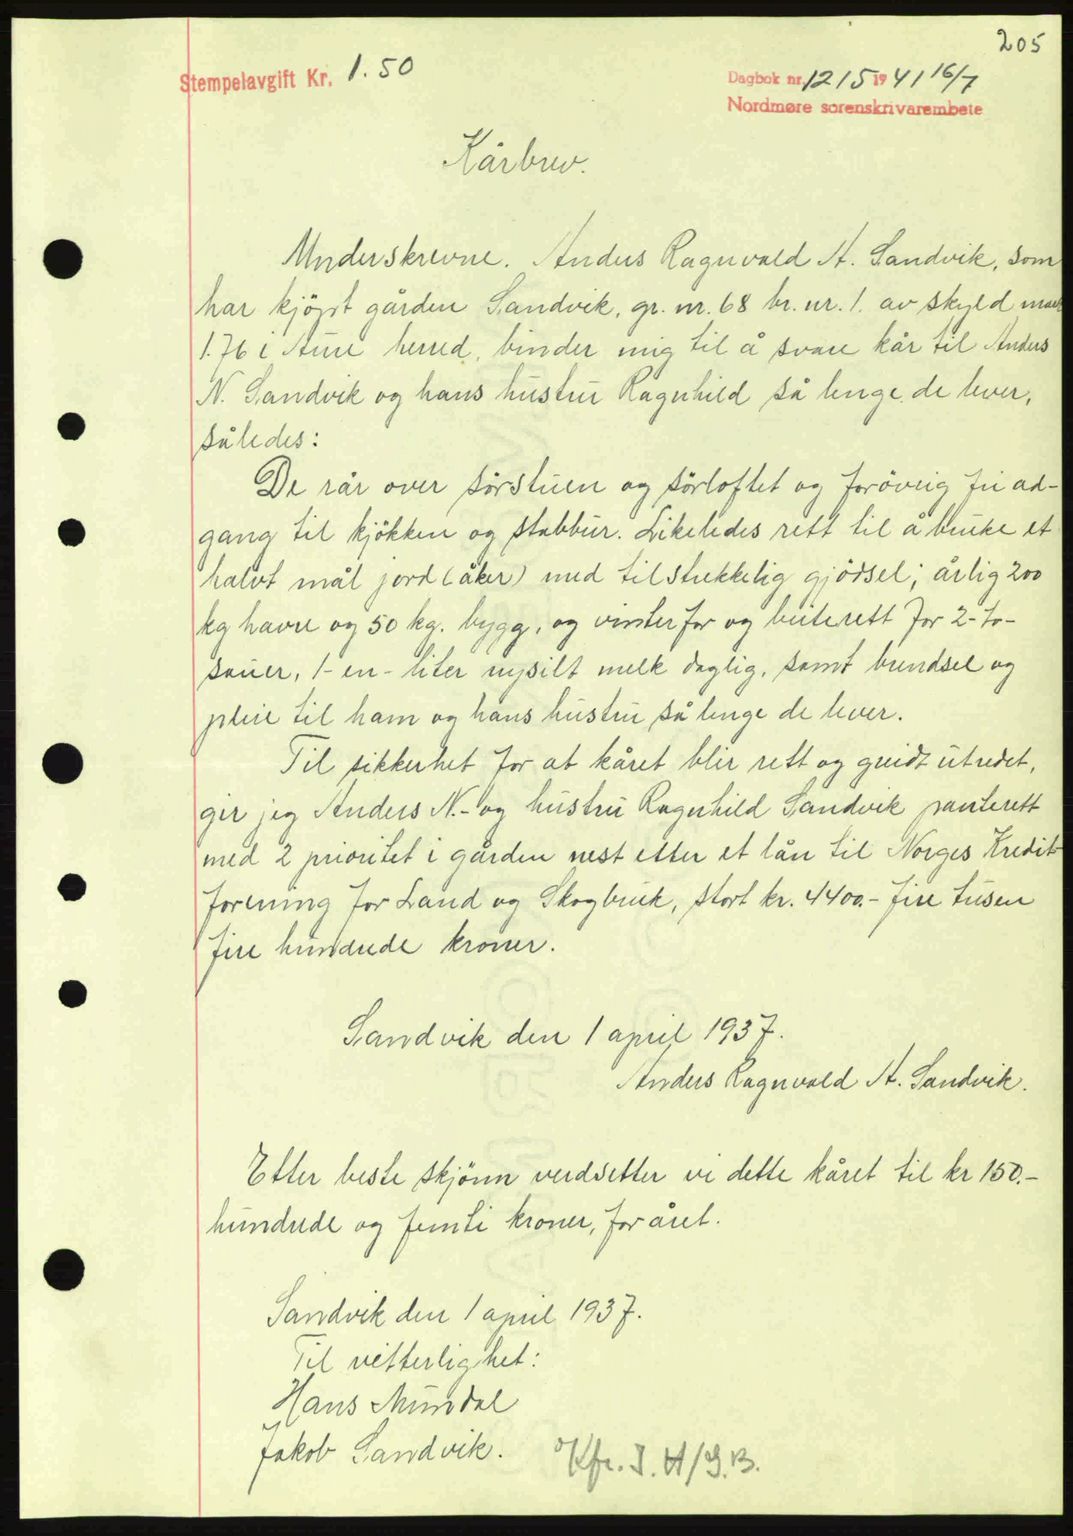 205
Stempelavgift Kr. 1.50
Dagbok nr. 1215 1941 16/7
Nordmøre sorenskrivarembete
Kårbrev.
Underskrevne. Anders Ragnvald A. Sandvik, som
har kjöpt gården Sandvik, gr. nr. 68 br. nr. 1. av skyld mark
1.76 i Aure herred, binder mig til å svare kår til Anders
N. Sandvik og hans hustru Ragnhild så lenge de lever,
således:
De rår over sörstuen og sörloftet og forövrig fri ad-
gang til kjökken og stabbur. Likeledes rett til å bruke et
halvt mål jord (åker) med tilstrekkelig gjödsel; årlig 200
kg havre og 50 kg. bygg, og vinterfor og beiterett for 2-to-
sauer, 1-en-liter nysilt melk daglig, samt brendsel og
pleie til ham og hans hustru så lenge de lever.
Til sikkerhet for at kåret blir rett og greidt utredet,
gir jeg Anders N.- og hustru Ragnhild Sandvik panterett
med 2 prioritet i gården nest etter et lån til Norges Kredit-
forening for Land og Skogbruk, stort kr. 4400.- fire tusen
fire hundrede kroner.
Sandvik den 1 april 1937.
Anders Ragnvald A. Sandvik.
Etter beste skjönn verdsetter vi dette kåret til kr 150.-
hundrede og femti kroner, for året.
Sandvik den 1 april 1937.
Til vitterlighet:
Hans Mundal
Jakob Sandvik. Kfr. I. H/G.B.